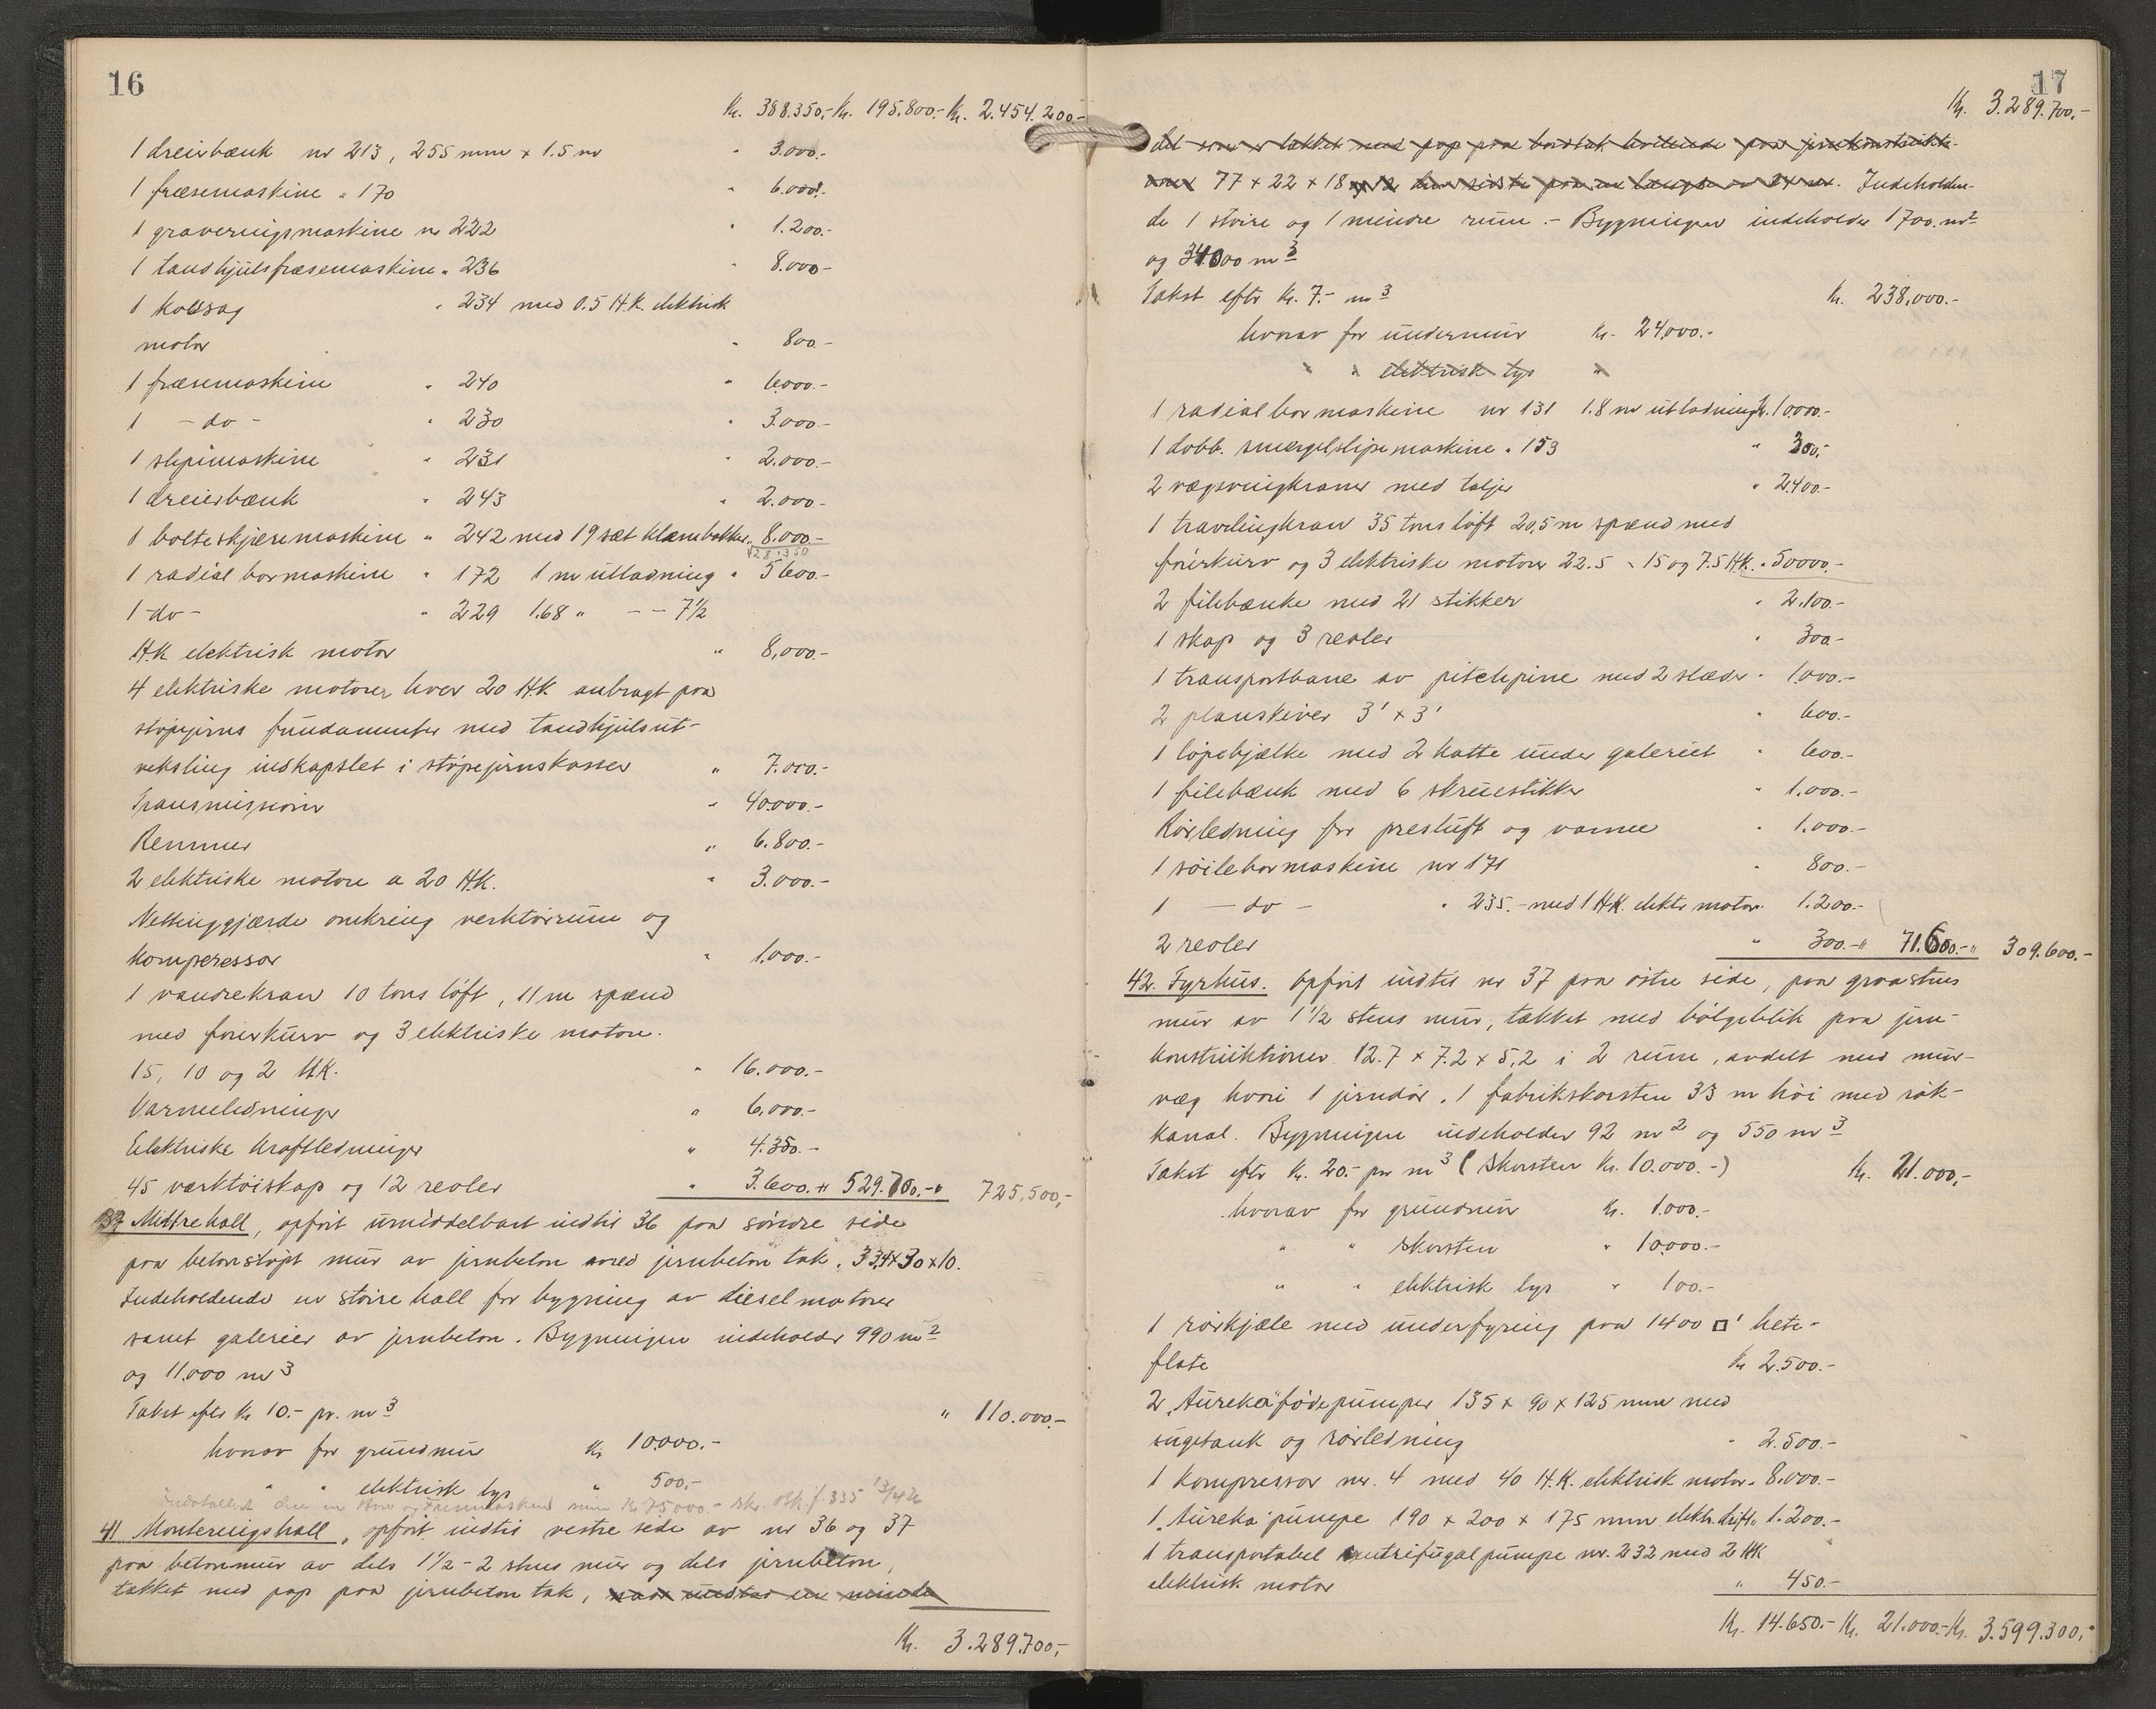 16
Kr. 388.350,- Kr. 195.800.- Kr. 2.454.200.-
1 dreierbænk nr 213, 255 mm x 1.5 m " 3.000.-
1 fræsemaskine " 170 " 6.000.-
1 graveringsmaskine nr 222 " 1.200.-
1 tandhjulsfræsemaskine " 236 " 8.000-
1 koldsag " 234 med 0.5 H.K. elektrisk
motor " 800.-
1 fræsemaskine " 240 " 6.000.-
1 - do - " 230 " 3.000.-
1 slipemaskine " 231 " 2.000.-
1 dreierbænk " 243 " 2.000.-
1 bolteskjæremaskine " 242 med 19 sæt klembakker " 8.000.-
428.350
1 radial bormaskine " 172 1 m utladning " 5600.-
1 - do - " 229 1.68 " - - 7½
H.K elektrisk motor " 8,000.-
4 elektriske motorer hver 20 H.K anbragt paa
støpejerns fundamenter med tandhjulsut-
veksling indkapslet i støpejernskasser " 7.000.-
Transmissioner " 40.000.-
Remmer " 6.800.-
2 elektriske motore a 20 H.K. " 3.000.-
Nettinggjærde omkring verktøirum og
kompressor " 1.000.-
1 vandrekran 10 tons løft, 11 m spænd
med førerkurv og 3 elektriske motore
15, 10 og 2 H.K. " 16.000.-
Varmeledninger " 6.000.-
Elektriske kraftledninger " 4.350.-
45 værktøiskap og 12 reoler " 3.600.- " 529.700.- " 725,500,-
37 Midtre hall, opført umiddelbart indtil 36 paa søndre side
paa betonstøpt mur av jernbeton med jernbeton tak. 33,4 x 30 x 10.
Indeholdende en større hall for bygning av dieselmotorer
samt galerier av jernbeton. Bygningen indeholder 990 m2
og 11.000 m3
Takst efter Kr 10.- pr. m3 " 110.000.-
hvorav for grundmur Kr 10.000.-
" " elektrisk lys " 500,-
41 Monteringshall, opført indtil vestre side av nr 36 og 37
paa betonmur av dels 1½ - 2 stens mur og dels jernbeton,
tækket med pap paa jernbeton tak, indtil en mindre
Kr. 3.289.700,-
17
Kr. 3.289.700,-
del som er tækket med pap paa bordtak hvilende paa jernkonstruktio-
ner 77 x 22 x 18 Indeholden-
de 1 større og 1 mindre rum. - Bygningen indeholder 1700 m2
og 34000 m3
Takst efter Kr. 7.- m3 Kr. 238.000.-
hvorav for undermur Kr. 24,000.-
" " elektrisk lys "
1 radialbormaskine nr 131 1.8 m utladning Kr. 10.000.-
1 dobb. smergelslipemaskine " 159 " 300,-
2 vægsvingkraner med taljer " 2.400.-
1 travelingkran 35 tons løft 20,5 m spænd med
førerkurv og 3 elektriske motorer 22.5 - 15 og 7.5 H.K. " 50000.-
2 filebænke med 21 stikker " 2.100.-
1 skap og 3 reoler " 300.-
1 transportbane av pitchpine med 2 slæder " 1.000.-
2 planskiver 3' x 3' " 600.-
1 løpebjælke med 2 katte under galeriet " 600.-
1 filebænk med 6 skruestikker " 1.000.-
Rørledning for presluft og varme " 1.000.-
1 søilebormaskine nr 171 " 800.-
1 - do - " 235.- med 1 H.K. elektr motor " 1.200.-
2 reoler " 300.- " 71.600.- " 309.600.-
42. Fyrhus. opført indtil nr 37 paa østre side, paa graastens
mur av 1½ stens mur, tækket med bølgeblik paa jern-
konstruktioner 12.7 x 7.2 x 5,2 i 2 rum, avdelt med mur-
væg hvori 1 jerndør. 1 fabrikskorsten 33 m høi med røk-
kanal. Bygningen indeholder 92 m2 og 550 m3
Takst efter Kr. 20.- pr m3 (Skorsten Kr. 10.000.-) Kr. 21.000,-
hvorav for grundmur Kr. 1.000.-
" " skorsten " 10.000.-
" " elektrisk lys " 100.-
1 rørkjele med underfyring paa 1400 □' hete-
flate Kr 2.500.-
2 "Aureka" fødepumper 135 x 90 x 125 mm med
sugetank og rørledning " 2.500.-
1 kompressor nr. 4 med 40 H.K. elektrisk motor " 8.000.-
1 "Aureka" pumpe 190 x 200 x 175 mm elektr. drift " 1.200.-
1 transportabel sentrifugalpumpe nr. 232 med 2 HK
elektrisk motor " 450.-
Kr. 14.650.- Kr. 21.000.- Kr. 3.599.300,-